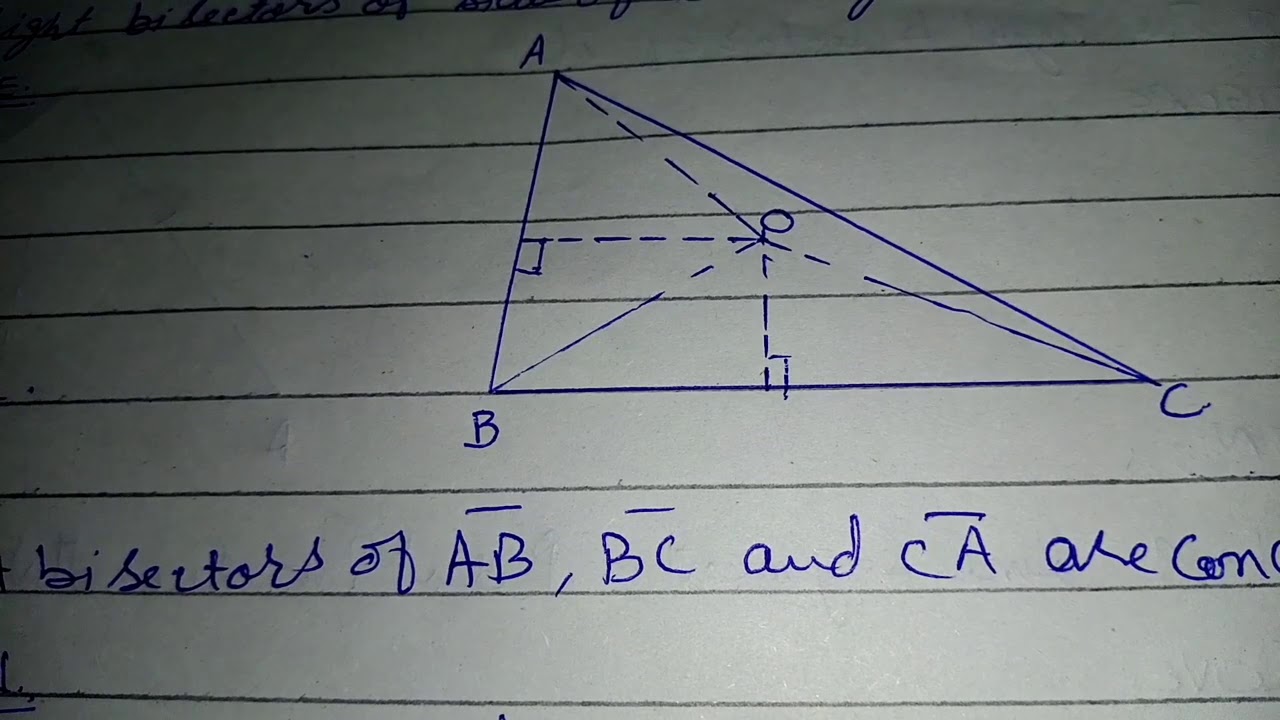 ight bisectors of
A
O
B
C
bisectors of AB, BC and CA are Conc